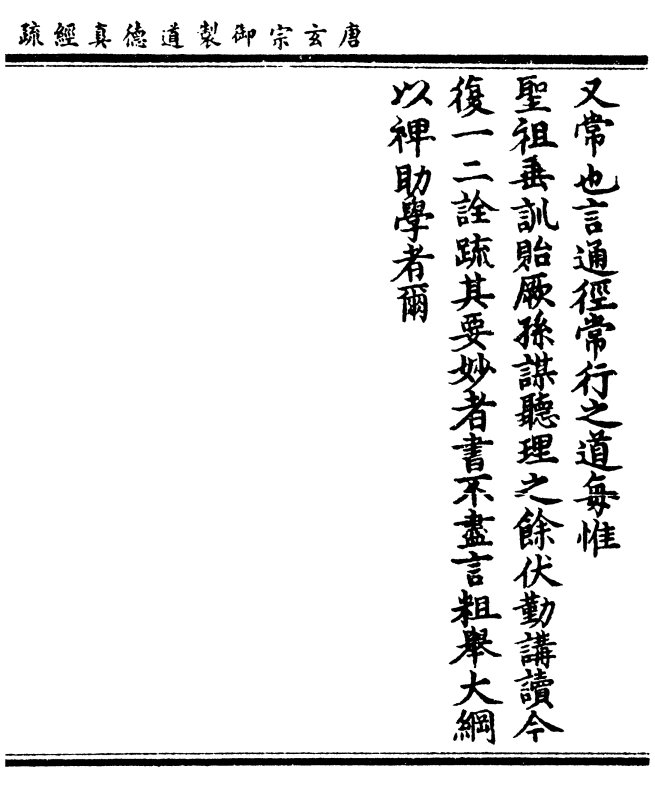 唐玄宗御製道德真經疏
又常也言通徑常行之道每惟
聖祖垂訓貽厥孫謀聽理之餘伏勤講讀今
復一二詮疏其要妙者書不盡言粗舉大綱
以裨助學者爾